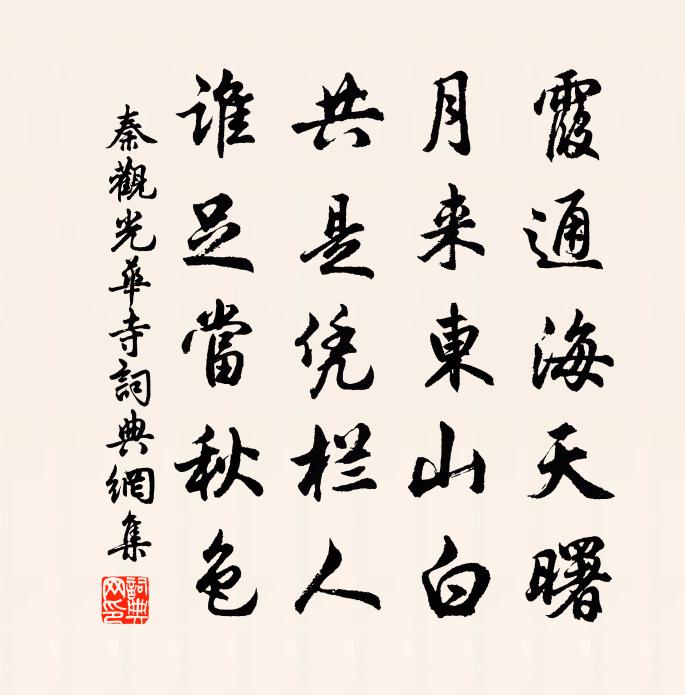 霞通海天曙
月来東山白
共是凭栏人
誰足當秋色
秦觀光華寺詞典網集
詞典網印